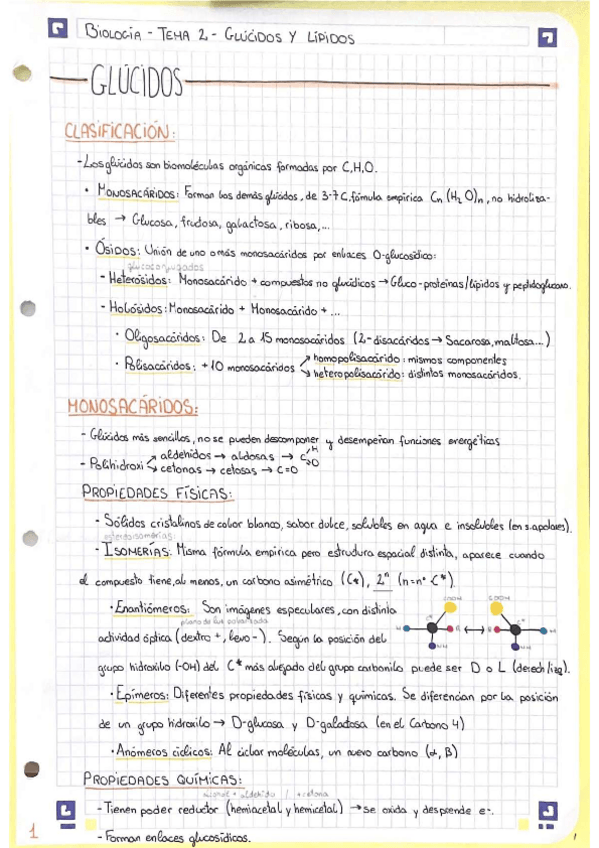 BIOLOGÍA - TEMA 2 - GLÚCIDOS Y LÍPIDOS
GLÚCIDOS
CLASIFICACIÓN:
- Los glúcidos son biomoléculas orgánicas formadas por C,H,O.
• MONOSACÁRIDOS: Forman los demás glúcidos, de 3-7 C, fórmula empírica Cn (H2 O)n, no hidroliza-
bles → Glucosa, fructosa, galactosa, ribosa,...
• ÓSIDOS: Unión de uno o más monosacáridos por enlaces O-glucosídico:
glucoconjugados
- Heterósidos: Monosacárido + compuestos no glucídicos → Gluco-proteínas/lípidos y peptidoglucano.
- Holósidos: Monosacárido + Monosacárido + ...
• Oligosacáridos: De 2 a 15 monosacáridos (2-disacáridos → Sacarosa, maltosa...)
• Polisacáridos: +10 monosacáridos ↗ homopolisacárido: mismos componentes
↘ heteropolisacárido: distintos monosacáridos.
MONOSACÁRIDOS:
- Glúcidos más sencillos, no se pueden descomponer y desempeñan funciones energéticas
- Polihidroxi ↗ aldehidos → aldosas → C H O
↘ cetonas → cetosas → C=O
PROPIEDADES FÍSICAS:
- Sólidos cristalinos de color blanco, sabor dulce, solubles en agua e insolubles (en s.apolares).
estereoisomerías
- ISOMERÍAS: Misma fórmula empírica pero estructura espacial distinta, aparece cuando
el compuesto tiene, al menos, un carbono asimétrico (C*), 2ⁿ (n=nº C*)
• Enantiómeros: Son imágenes especulares, con distinta
plano de luz polarizada
actividad óptica (dextro +, levo -). Según la posición del
COOH COOH
H C* R R C* H
NH NH
grupo hidroxilo (-OH) del C* más alejado del grupo carbonilo puede ser D o L (derech/izq).
• Epímeros: Diferentes propiedades físicas y químicas. Se diferencian por la posición
de un grupo hidroxilo → D-glucosa y D-galactosa (en el Carbono 4)
• Anómeros cíclicos: Al ciclar moléculas, un nuevo carbono (α, β)
PROPIEDADES QUÍMICAS:
alcohol + aldehído / + cetona
- Tienen poder reductor (hemiacetal y hemicetal) → se oxida y desprende e-.
- Forman enlaces glucosídicos.
1